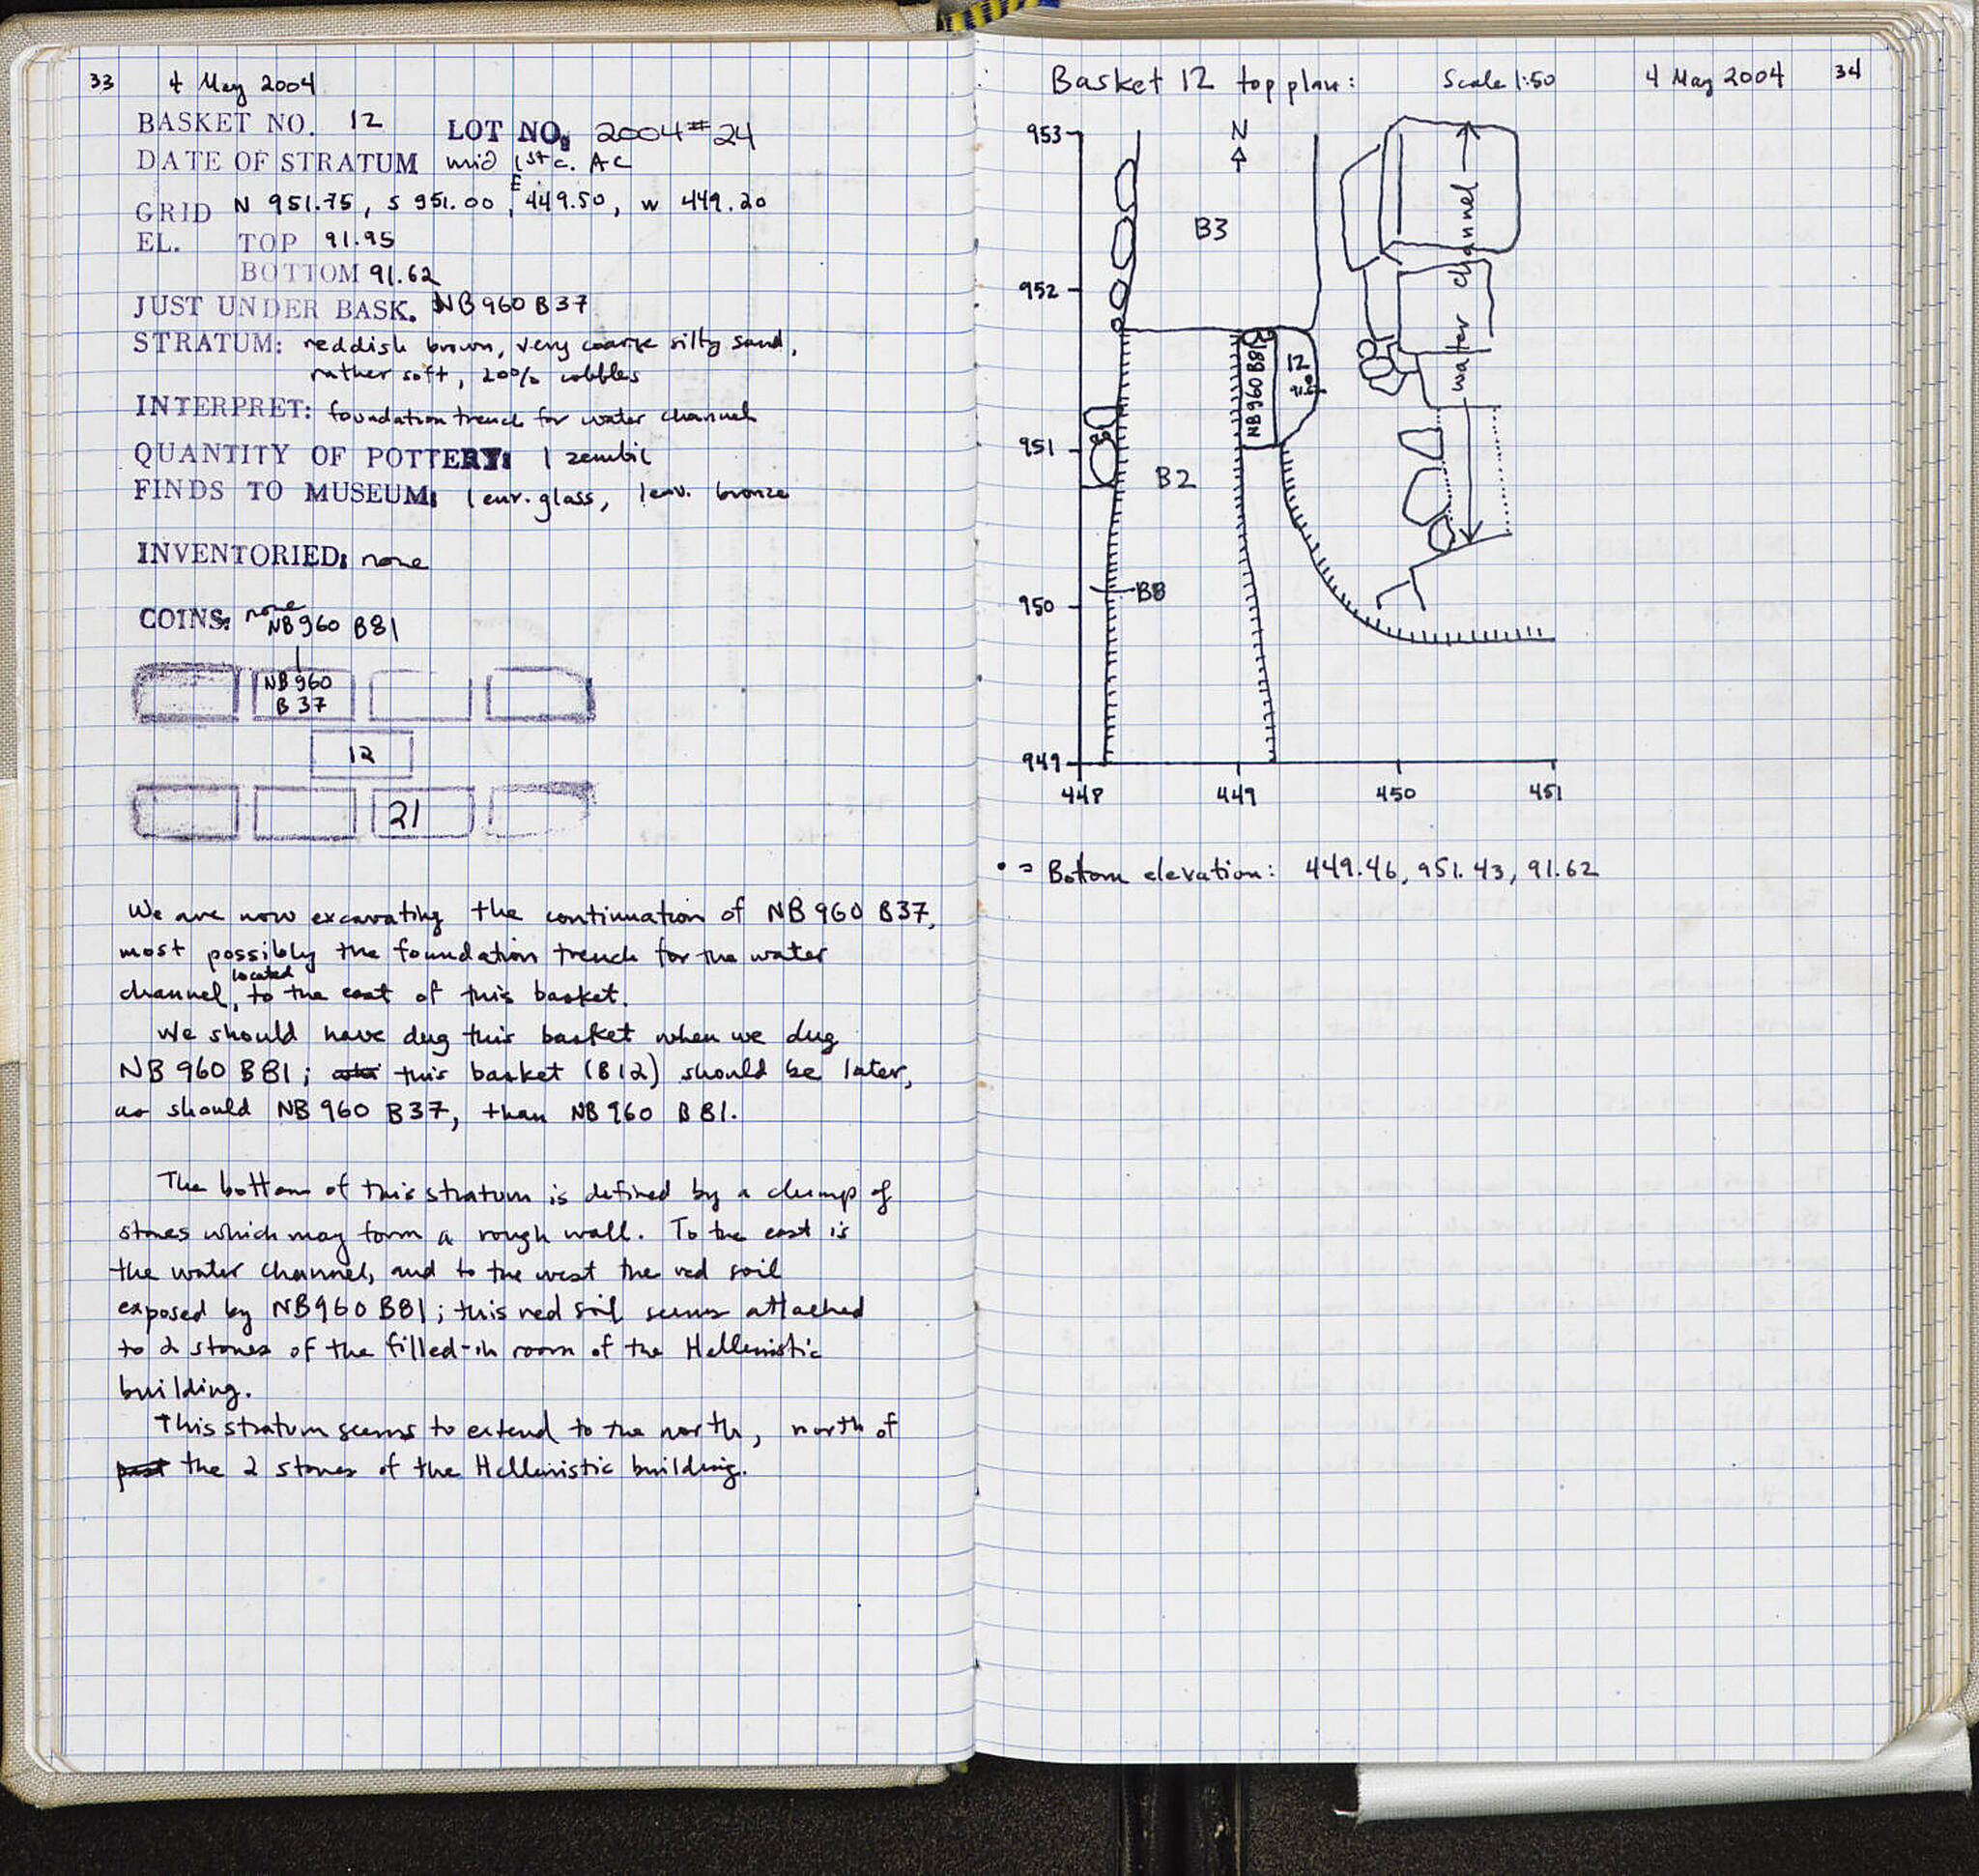 33 4 May 2004
BASKET NO. 12 LOT NO: 2004#24
DATE OF STRATUM mid 1st c. AC
GRID N 951.75, S 951.00, E 449.50, W 449.20
EL. TOP 91.95
BOTTOM 91.62
JUST UNDER BASK. NB960 B37
STRATUM: reddish brown, very coarse silty sand,
rather soft, 20% cobbles
INTERPRET: foundation trench for water channel
QUANTITY OF POTTERY: 1 zembil
FINDS TO MUSEUM: 1 env. glass, 1 env. bronze
INVENTORIED: none
COINS: none
NB960 B81
NB960
B37
12
21
We are now excavating the continuation of NB960 B37,
most possibly the foundation trench for the water
channel, located to the east of this basket.
We should have dug this basket when we dug
NB960 B81; this basket (B12) should be later,
as should NB960 B37, than NB960 B81.
The bottom of this stratum is defined by a clump of
stones which may form a rough wall. To the east is
the water channel, and to the west the red soil
exposed by NB960 B81; this red soil seems attached
to 2 stones of the filled-in room of the Hellenistic
building.
This stratum seems to extend to the north, north of
past the 2 stones of the Hellenistic building.
Basket 12 top plan: Scale 1:50 4 May 2004 34
953
N
water channel
B3
952
NB960 B81
12
91.62
951
B2
950
B8
949
448 449 450 451
• = Bottom elevation: 449.46, 951.43, 91.62